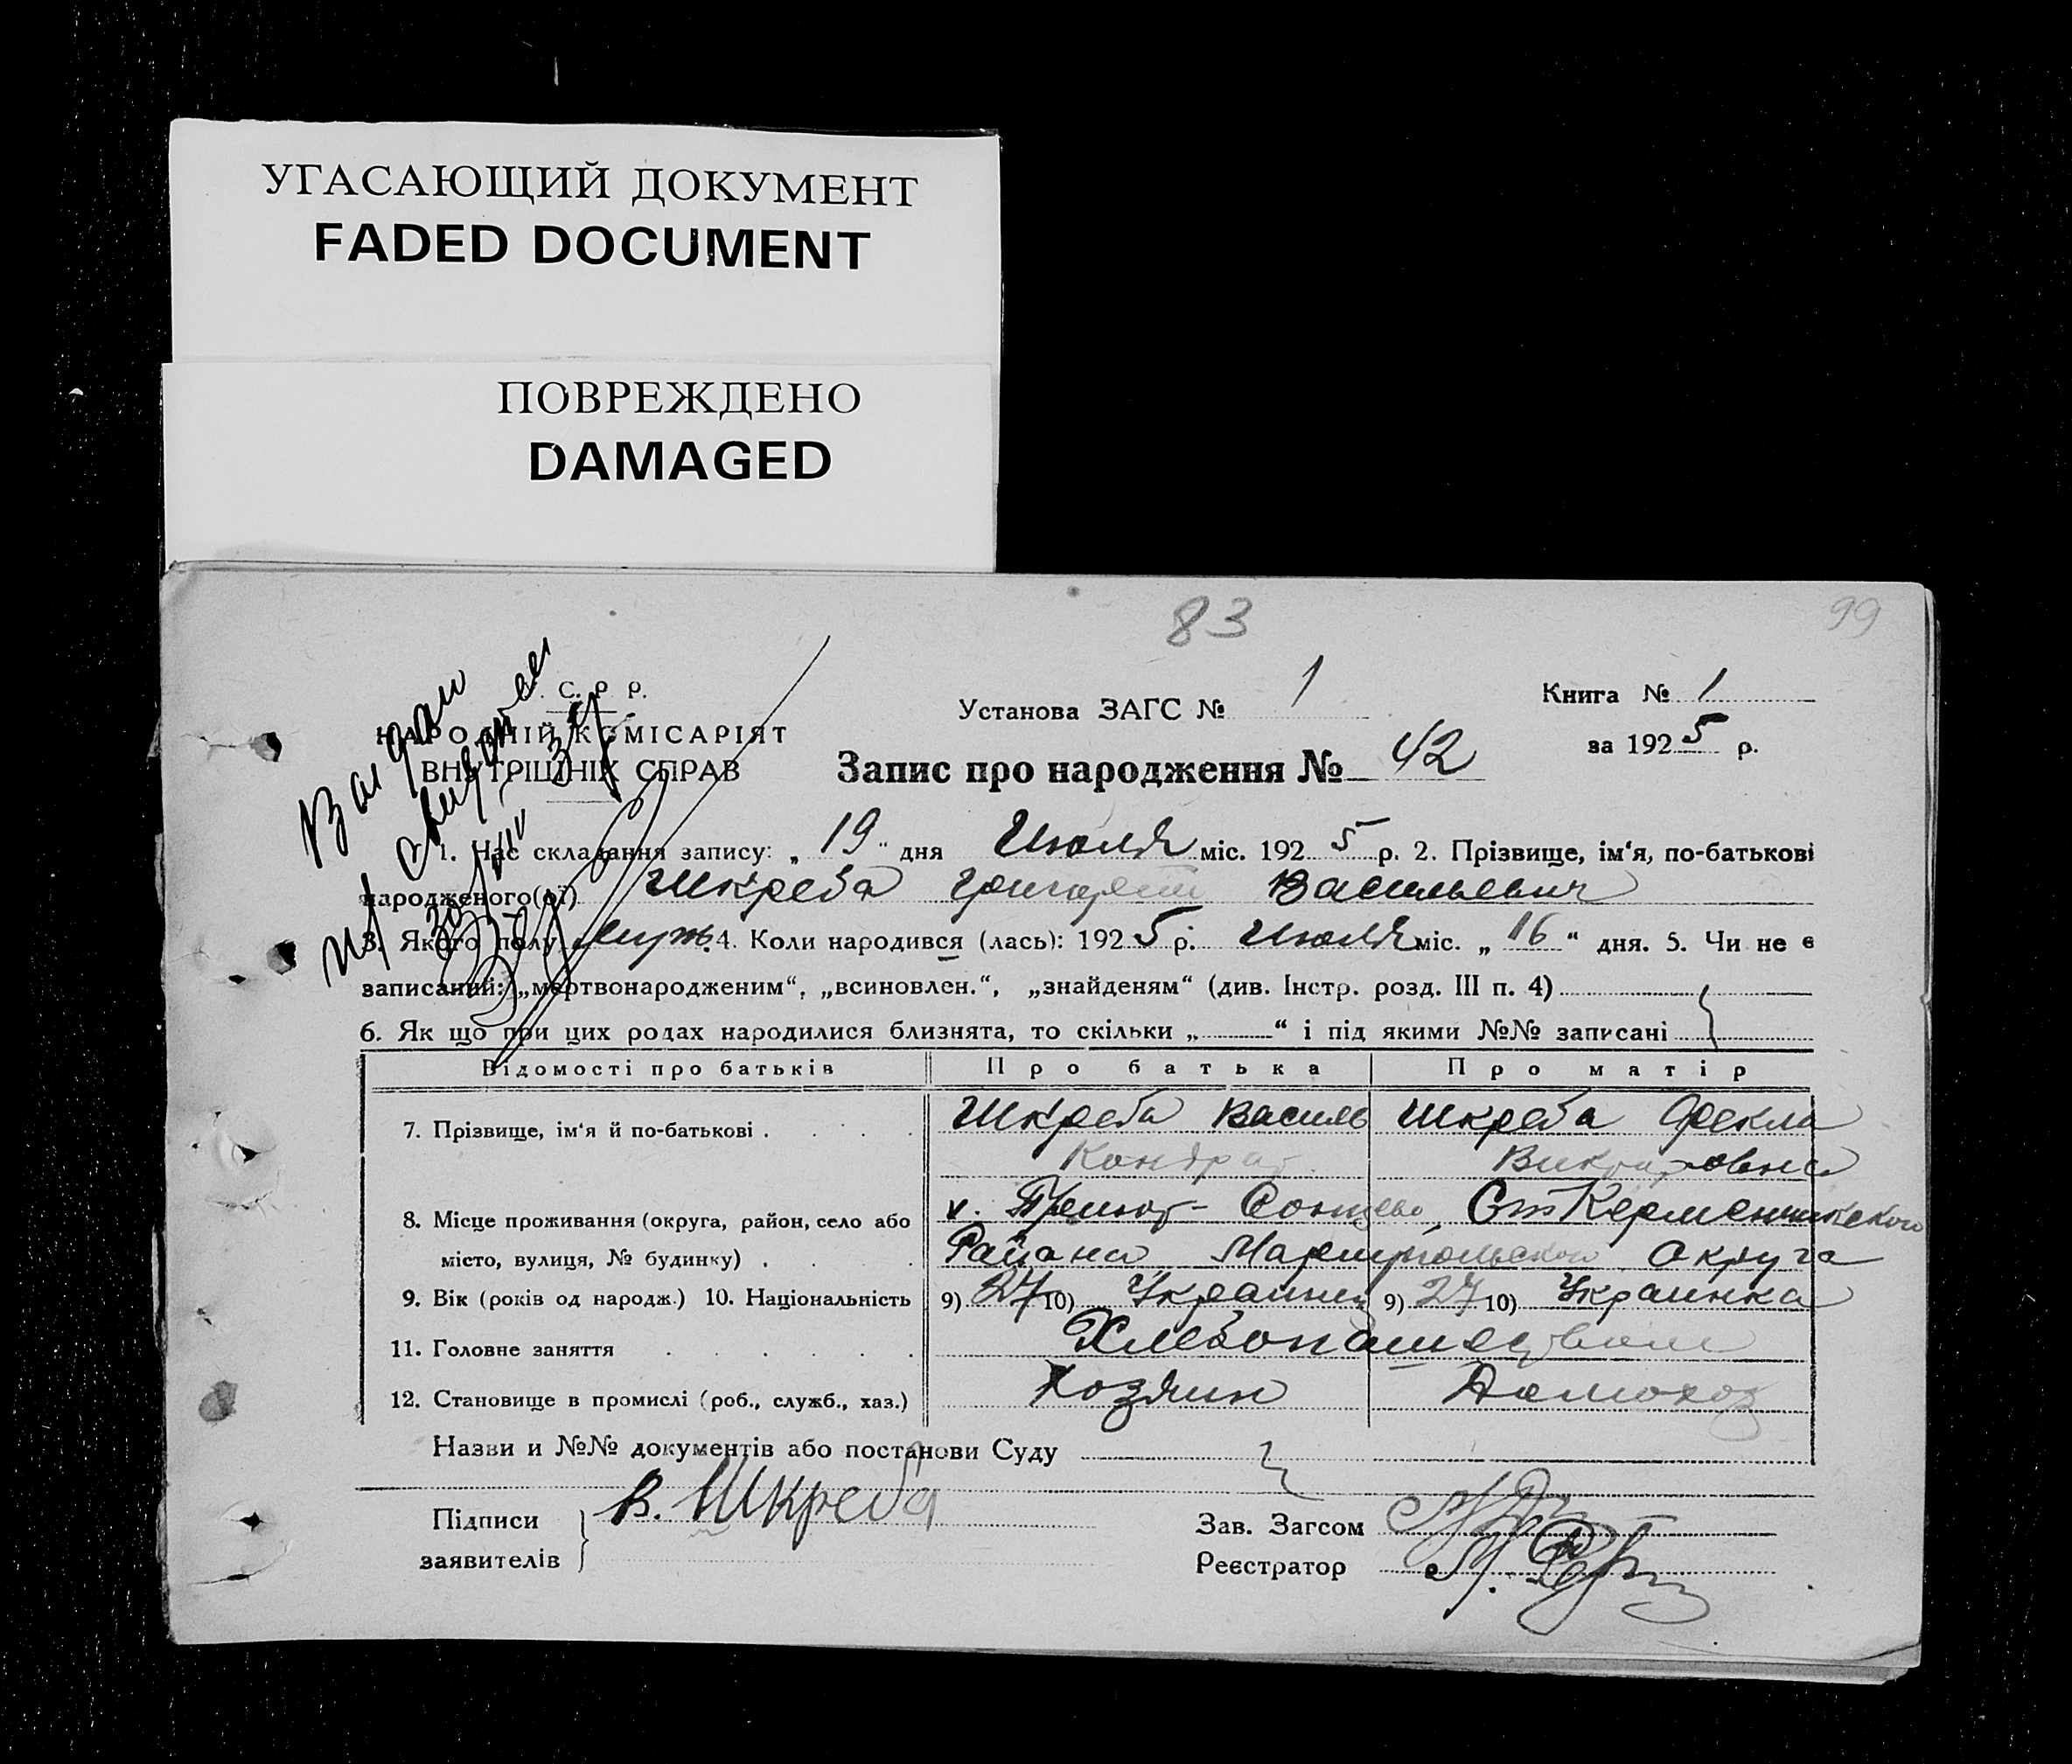 УГАСАЮЩИЙ ДОКУМЕНТ
FADED DOCUMENT
ПОВРЕЖДЕНО
DAMAGED
83
99
С. Р Р.
НАРОДНІЙ КОМІСАРІЯТ
ВНУТРІШНІХ СПРАВ
Установа ЗАГС № 1
Книга № 1
за 1925 р.
Запис про народження № 42
1. Час складання запису: „ 19 " дня Июля міс. 1925 р. 2. Прізвище, ім'я, по-батькові
народженого(ої) Шкреба Григорий Васильевич
3. Якого полу муж. 4. Коли народився (лась): 1925 р. Июля міс. „ 16 " дня. 5. Чи не є
записаний: „мертвонародженим", „всиновлен.", „знайденям" (див. Інстр. розд. III п. 4)
6. Як що при цих родах народилися близнята, то скільки „ " і під якими №№ записані
Відомості про батьків Про батька Про матір
7. Прізвище, ім'я й по-батькові Шкреба Василь Шкреба Фекла
Кондрат.
8. Місце проживання (округа, район, село або Ст Керменчикского
місто, вулиця, № будинку) Района Мариупольского Округа
9. Вік (років од народж.) 10. Національність 9) 27 10) Украинец 9) 27 10) Украинка
11. Головне заняття Хлебопашеством
12. Становище в промислі (роб., служб., хаз.) Хозяин Домохоз
Назви и №№ документів або постанови Суду
Підписи В. Шкреба
заявителів
Зав. Загсом
Реєстратор